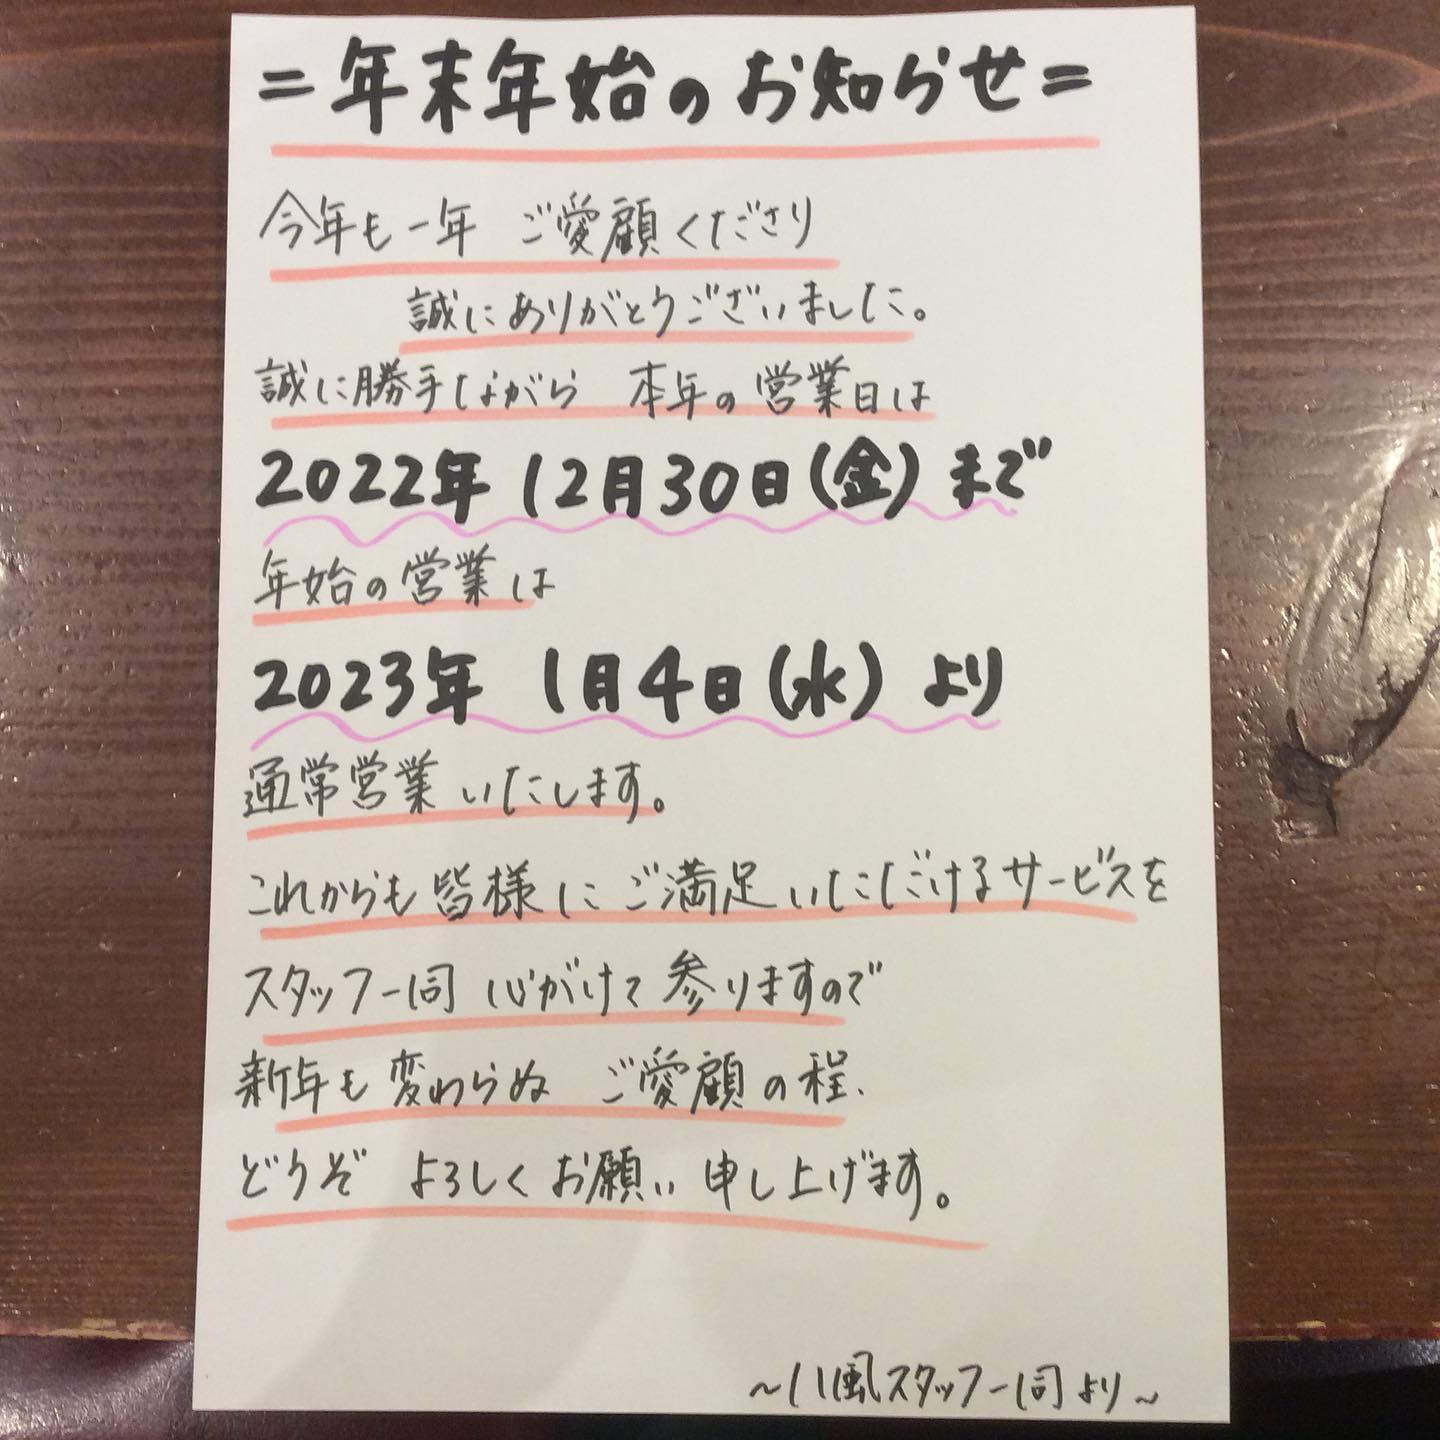 =年末年始のお知らせ=
今年も一年 ご愛顧くださり
誠にありがとうございました。
誠に勝手ながら 本年の営業日は
2022年 12月30日(金)まで
年始の営業は
2023年 1月4日(水)より
通常営業いたします。
これからも皆様にご満足いただけるサービスを
スタッフ一同 心がけて参りますので
新年も変わらぬ ご愛顧の程、
どうぞ よろしくお願い申し上げます。
~川風スタッフ一同より~